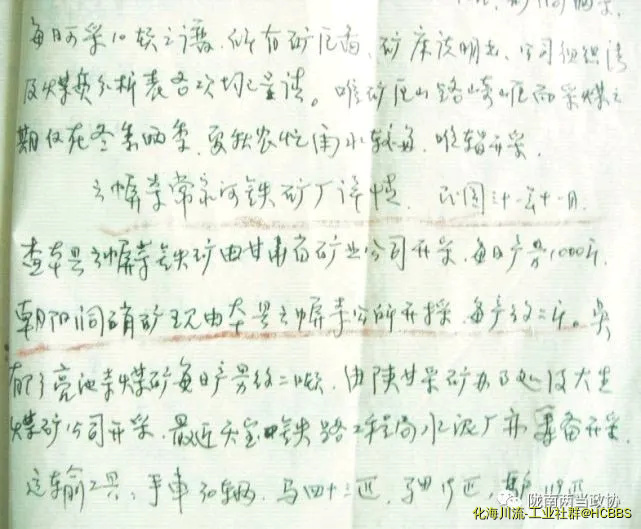 每日可采10顿之谱，所有矿厂图、矿床说明书、公司组织法
及煤质分析表各次均已呈请。唯矿厂山路崎岖而采煤之
期仅在冬春两季，夏秋农忙雨水较多，唯暂开采。
云屏寺常家河铁矿厂详情 民国三十一年十一月
查本县云屏寺铁矿由甘肃省矿业公司开采，每日产量1000斤，
朝阳洞硝矿现由本县云屏寺公所开采，每产约二斤。
亮池寺煤矿每日产量约二顿，由陕甘采矿办事处及大生
煤矿公司开采，最近天宝铁路工程局水泥厂亦筹备开采
运输工具：手车 辆，马四十二匹，
陇南两当政协
化海川流-工业社群@HCBBS